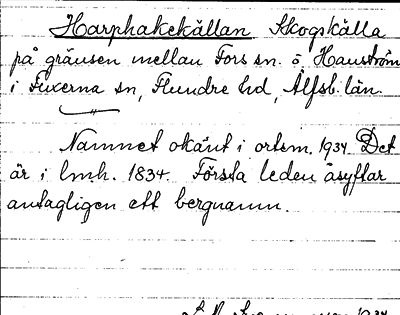 Harphakekällan Skogskälla
på gränsen mellan Fors sn. o. Hanström
i Fuxerna sn, Flundre hd, Älfsb. län.
Namnet okänt i ortsm. 1934 Det
är i lmh. 1834. Första leden åsyftar
antagligen ett bergnamn.